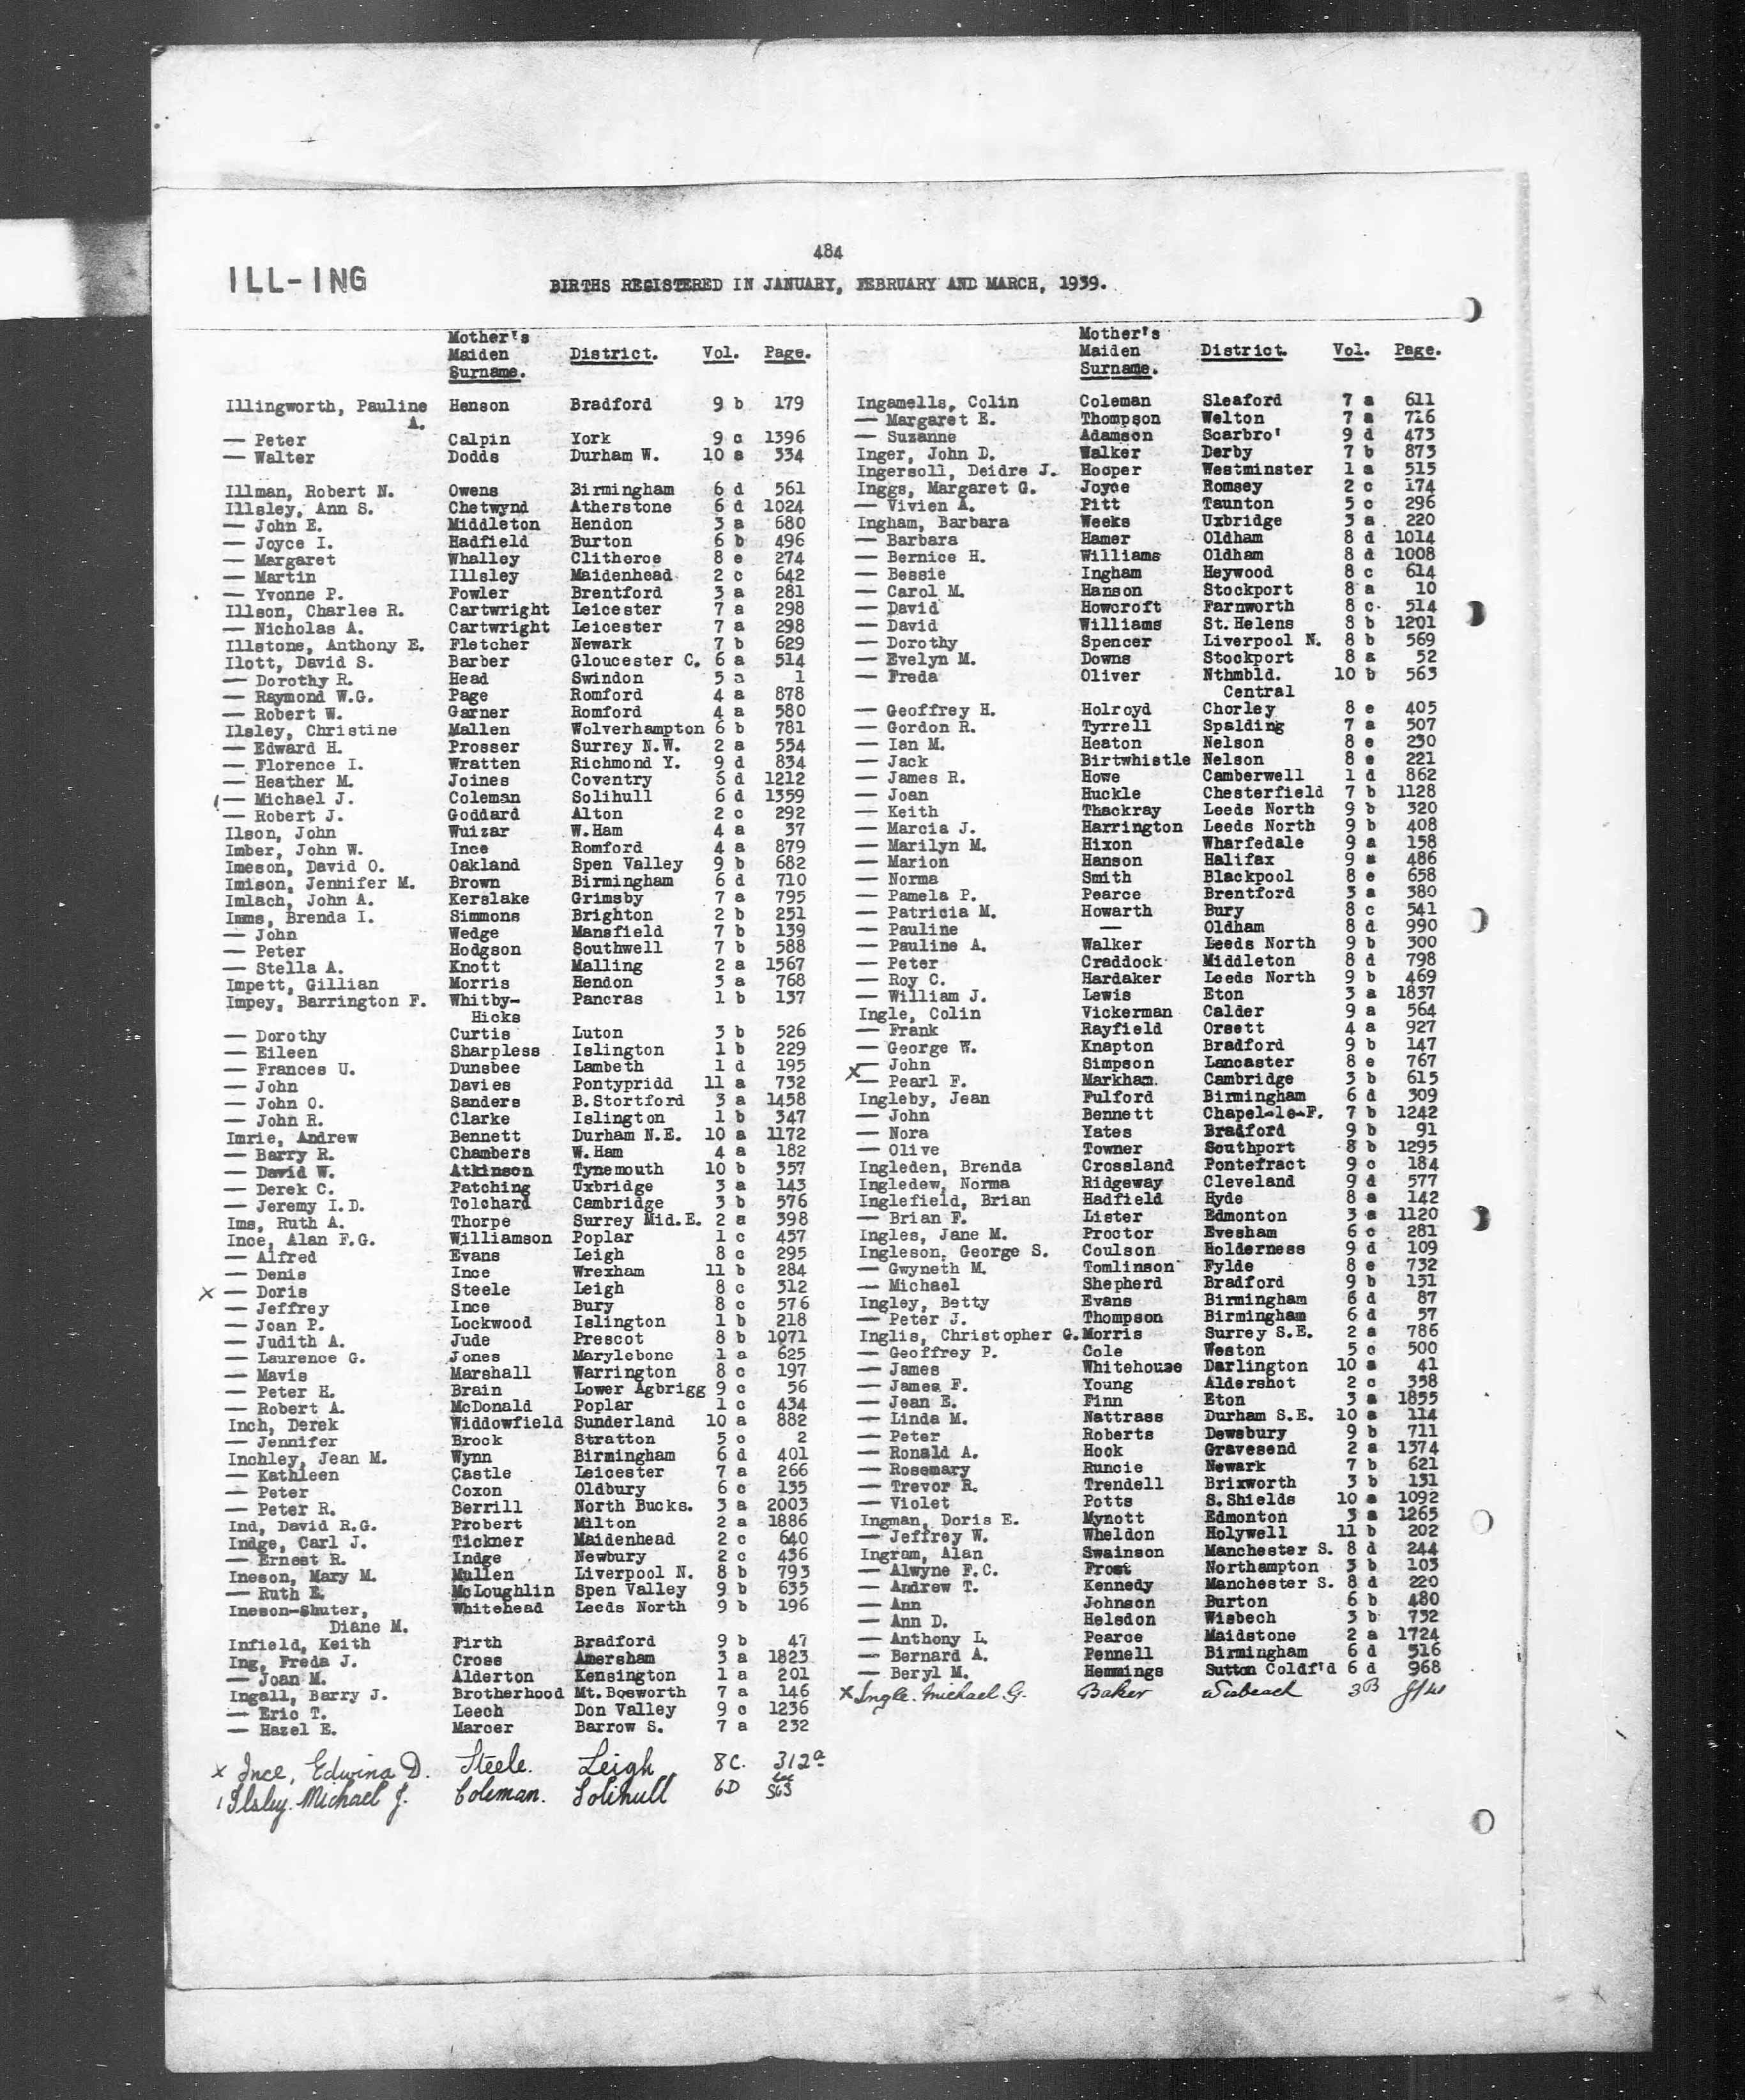 484
ILL-ING
BIRTHS REGISTERED IN JANUARY, FEBRUARY AND MARCH, 1939.
Mother's
Maiden District. Vol. Page.
Surname.
Illingworth, Pauline Henson Bradford 9 b 179
A.
— Peter Calpin York 9 c 1396
— Walter Dodds Durham W. 10 a 334
Illman, Robert N. Owens Birmingham 6 d 561
Illsley, Ann S. Chetwynd Atherstone 6 d 1024
— John E. Middleton Hendon 3 a 680
— Joyce I. Hadfield Burton 6 b 496
— Margaret Whalley Clitheroe 8 e 274
— Martin Illsley Maidenhead 2 c 642
— Yvonne P. Fowler Brentford 3 a 281
Illson, Charles R. Cartwright Leicester 7 a 298
— Nicholas A. Cartwright Leicester 7 a 298
Illstone, Anthony E. Fletcher Newark 7 b 629
Ilott, David S. Barber Gloucester C. 6 a 514
— Dorothy R. Head Swindon 5 a 1
— Raymond W.G. Page Romford 4 a 878
— Robert W. Garner Romford 4 a 580
Ilsley, Christine Mallen Wolverhampton 6 b 781
— Edward H. Prosser Surrey N.W. 2 a 554
— Florence I. Wratten Richmond Y. 9 d 834
— Heather M. Joines Coventry 6 d 1212
— Michael J. Coleman Solihull 6 d 1359
— Robert J. Goddard Alton 2 c 292
Ilson, John Wuizar W.Ham 4 a 37
Imber, John W. Ince Romford 4 a 879
Imeson, David O. Oakland Spen Valley 9 b 682
Imison, Jennifer M. Brown Birmingham 6 d 710
Imlach, John A. Kerslake Grimsby 7 a 795
Imms, Brenda I. Simmons Brighton 2 b 251
— John Wedge Mansfield 7 b 139
— Peter Hodgson Southwell 7 b 588
— Stella A. Knott Malling 2 a 1567
Impett, Gillian Morris Hendon 3 a 768
Impey, Barrington F. Whitby- Pancras 1 b 137
Hicks
— Dorothy Curtis Luton 3 b 526
— Eileen Sharpless Islington 1 b 229
— Frances U. Dunsbee Lambeth 1 d 195
— John Davies Pontypridd 11 a 732
— John O. Sanders B.Stortford 3 a 1458
— John R. Clarke Islington 1 b 347
Imrie, Andrew Bennett Durham N.E. 10 a 1172
— Barry R. Chambers W.Ham 4 a 182
— David W. Atkinson Tynemouth 10 b 357
— Derek C. Patching Uxbridge 3 a 143
— Jeremy I.D. Tolchard Cambridge 3 b 576
Ims, Ruth A. Thorpe Surrey Mid.E. 2 a 398
Ince, Alan F.G. Williamson Poplar 1 c 457
— Alfred Evans Leigh 8 c 295
— Denis Ince Wrexham 11 b 284
x — Doris Steele Leigh 8 c 312
— Jeffrey Ince Bury 8 c 576
— Joan P. Lockwood Islington 1 b 218
— Judith A. Jude Prescot 8 b 1071
— Laurence G. Jones Marylebone 1 a 625
— Mavis Marshall Warrington 8 c 197
— Peter H. Brain Lower Agbrigg 9 c 56
— Robert A. McDonald Poplar 1 c 434
Inch, Derek Widdowfield Sunderland 10 a 882
— Jennifer Brock Stratton 5 c 2
Inchley, Jean M. Wynn Birmingham 6 d 401
— Kathleen Castle Leicester 7 a 266
— Peter Coxon Oldbury 6 c 135
— Peter R. Berrill North Bucks. 3 a 2003
Ind, David R.G. Probert Milton 2 a 1886
Indge, Carl J. Tickner Maidenhead 2 c 640
— Ernest R. Indge Newbury 2 c 436
Ineson, Mary M. Mullen Liverpool N. 8 b 793
— Ruth E. McLoughlin Spen Valley 9 b 635
Ineson-Shuter, Whitehead Leeds North 9 b 196
Diane M.
Infield, Keith Firth Bradford 9 b 47
Ing, Freda J. Cross Amersham 3 a 1823
— Joan M. Alderton Kensington 1 a 201
Ingall, Barry J. Brotherhood Mt.Bosworth 7 a 146
— Eric T. Leech Don Valley 9 c 1236
— Hazel E. Marcer Barrow S. 7 a 232
x Ince, Edwina D. Steele. Leigh 8C. 312a
Ilsley. Michael J. Coleman. Solihull 6D S63
Mother's
Maiden District. Vol. Page.
Surname.
Ingamells, Colin Coleman Sleaford 7 a 611
— Margaret E. Thompson Welton 7 a 716
— Suzanne Adamson Scarbro' 9 d 473
Inger, John D. Walker Derby 7 b 873
Ingersoll, Deidre J. Hooper Westminster 1 a 515
Inggs, Margaret G. Joyce Romsey 2 c 174
— Vivien A. Pitt Taunton 5 c 296
Ingham, Barbara Weeks Uxbridge 3 a 220
— Barbara Hamer Oldham 8 d 1014
— Bernice H. Williams Oldham 8 d 1008
— Bessie Ingham Heywood 8 c 614
— Carol M. Hanson Stockport 8 a 10
— David Howcroft Farnworth 8 c 514
— David Williams St.Helens 8 b 1201
— Dorothy Spencer Liverpool N. 8 b 569
— Evelyn M. Downs Stockport 8 a 52
— Freda Oliver Nthmbld. 10 b 563
Central
— Geoffrey H. Holroyd Chorley 8 e 405
— Gordon R. Tyrrell Spalding 7 a 507
— Ian M. Heaton Nelson 8 e 230
— Jack Birtwhistle Nelson 8 e 221
— James R. Howe Camberwell 1 d 862
— Joan Huckle Chesterfield 7 b 1128
— Keith Thackray Leeds North 9 b 320
— Marcia J. Harrington Leeds North 9 b 408
— Marilyn M. Hixon Wharfedale 9 a 158
— Marion Hanson Halifax 9 a 486
— Norma Smith Blackpool 8 e 658
— Pamela P. Pearce Brentford 3 a 380
— Patricia M. Howarth Bury 8 c 541
— Pauline — Oldham 8 d 990
— Pauline A. Walker Leeds North 9 b 300
— Peter Craddock Middleton 8 d 798
— Roy C. Hardaker Leeds North 9 b 469
— William J. Lewis Eton 3 a 1837
Ingle, Colin Vickerman Calder 9 a 564
— Frank Rayfield Orsett 4 a 927
— George W. Knapton Bradford 9 b 147
— John Simpson Lancaster 8 e 767
x — Pearl F. Markham Cambridge 3 b 615
Ingleby, Jean Fulford Birmingham 6 d 309
— John Bennett Chapel-le-F. 7 b 1242
— Nora Yates Bradford 9 b 91
— Olive Towner Southport 8 b 1295
Ingleden, Brenda Crossland Pontefract 9 c 184
Ingledew, Norma Ridgeway Cleveland 9 d 577
Inglefield, Brian Hadfield Hyde 8 a 142
— Brian F. Lister Edmonton 3 a 1120
Ingles, Jane M. Proctor Evesham 6 c 281
Ingleson, George S. Coulson Holderness 9 d 109
— Gwyneth M. Tomlinson Fylde 8 e 732
— Michael Shepherd Bradford 9 b 151
Ingley, Betty Evans Birmingham 6 d 87
— Peter J. Thompson Birmingham 6 d 57
Inglis, Christopher G. Morris Surrey S.E. 2 a 786
— Geoffrey P. Cole Weston 5 c 500
— James Whitehouse Darlington 10 a 41
— James F. Young Aldershot 2 c 358
— Jean E. Finn Eton 3 a 1855
— Linda M. Nattrass Durham S.E. 10 a 114
— Peter Roberts Dewsbury 9 b 711
— Ronald A. Hook Gravesend 2 a 1374
— Rosemary Runcie Newark 7 b 621
— Trevor R. Trendell Brixworth 3 b 131
— Violet Potts S.Shields 10 a 1092
Ingman, Doris E. Mynott Edmonton 3 a 1265
— Jeffrey W. Wheldon Holywell 11 b 202
Ingram, Alan Swainson Manchester S. 8 d 244
— Alwyne F.C. Frost Northampton 3 b 103
— Andrew T. Kennedy Manchester S. 8 d 220
— Ann Johnson Burton 6 b 480
— Ann D. Helsdon Wisbech 3 b 732
— Anthony L. Pearce Maidstone 2 a 1724
— Bernard A. Pennell Birmingham 6 d 516
— Beryl M. Hemmings Sutton Coldf'd 6 d 968
x Ingle. Michael G. Baker Wisbeach 3B